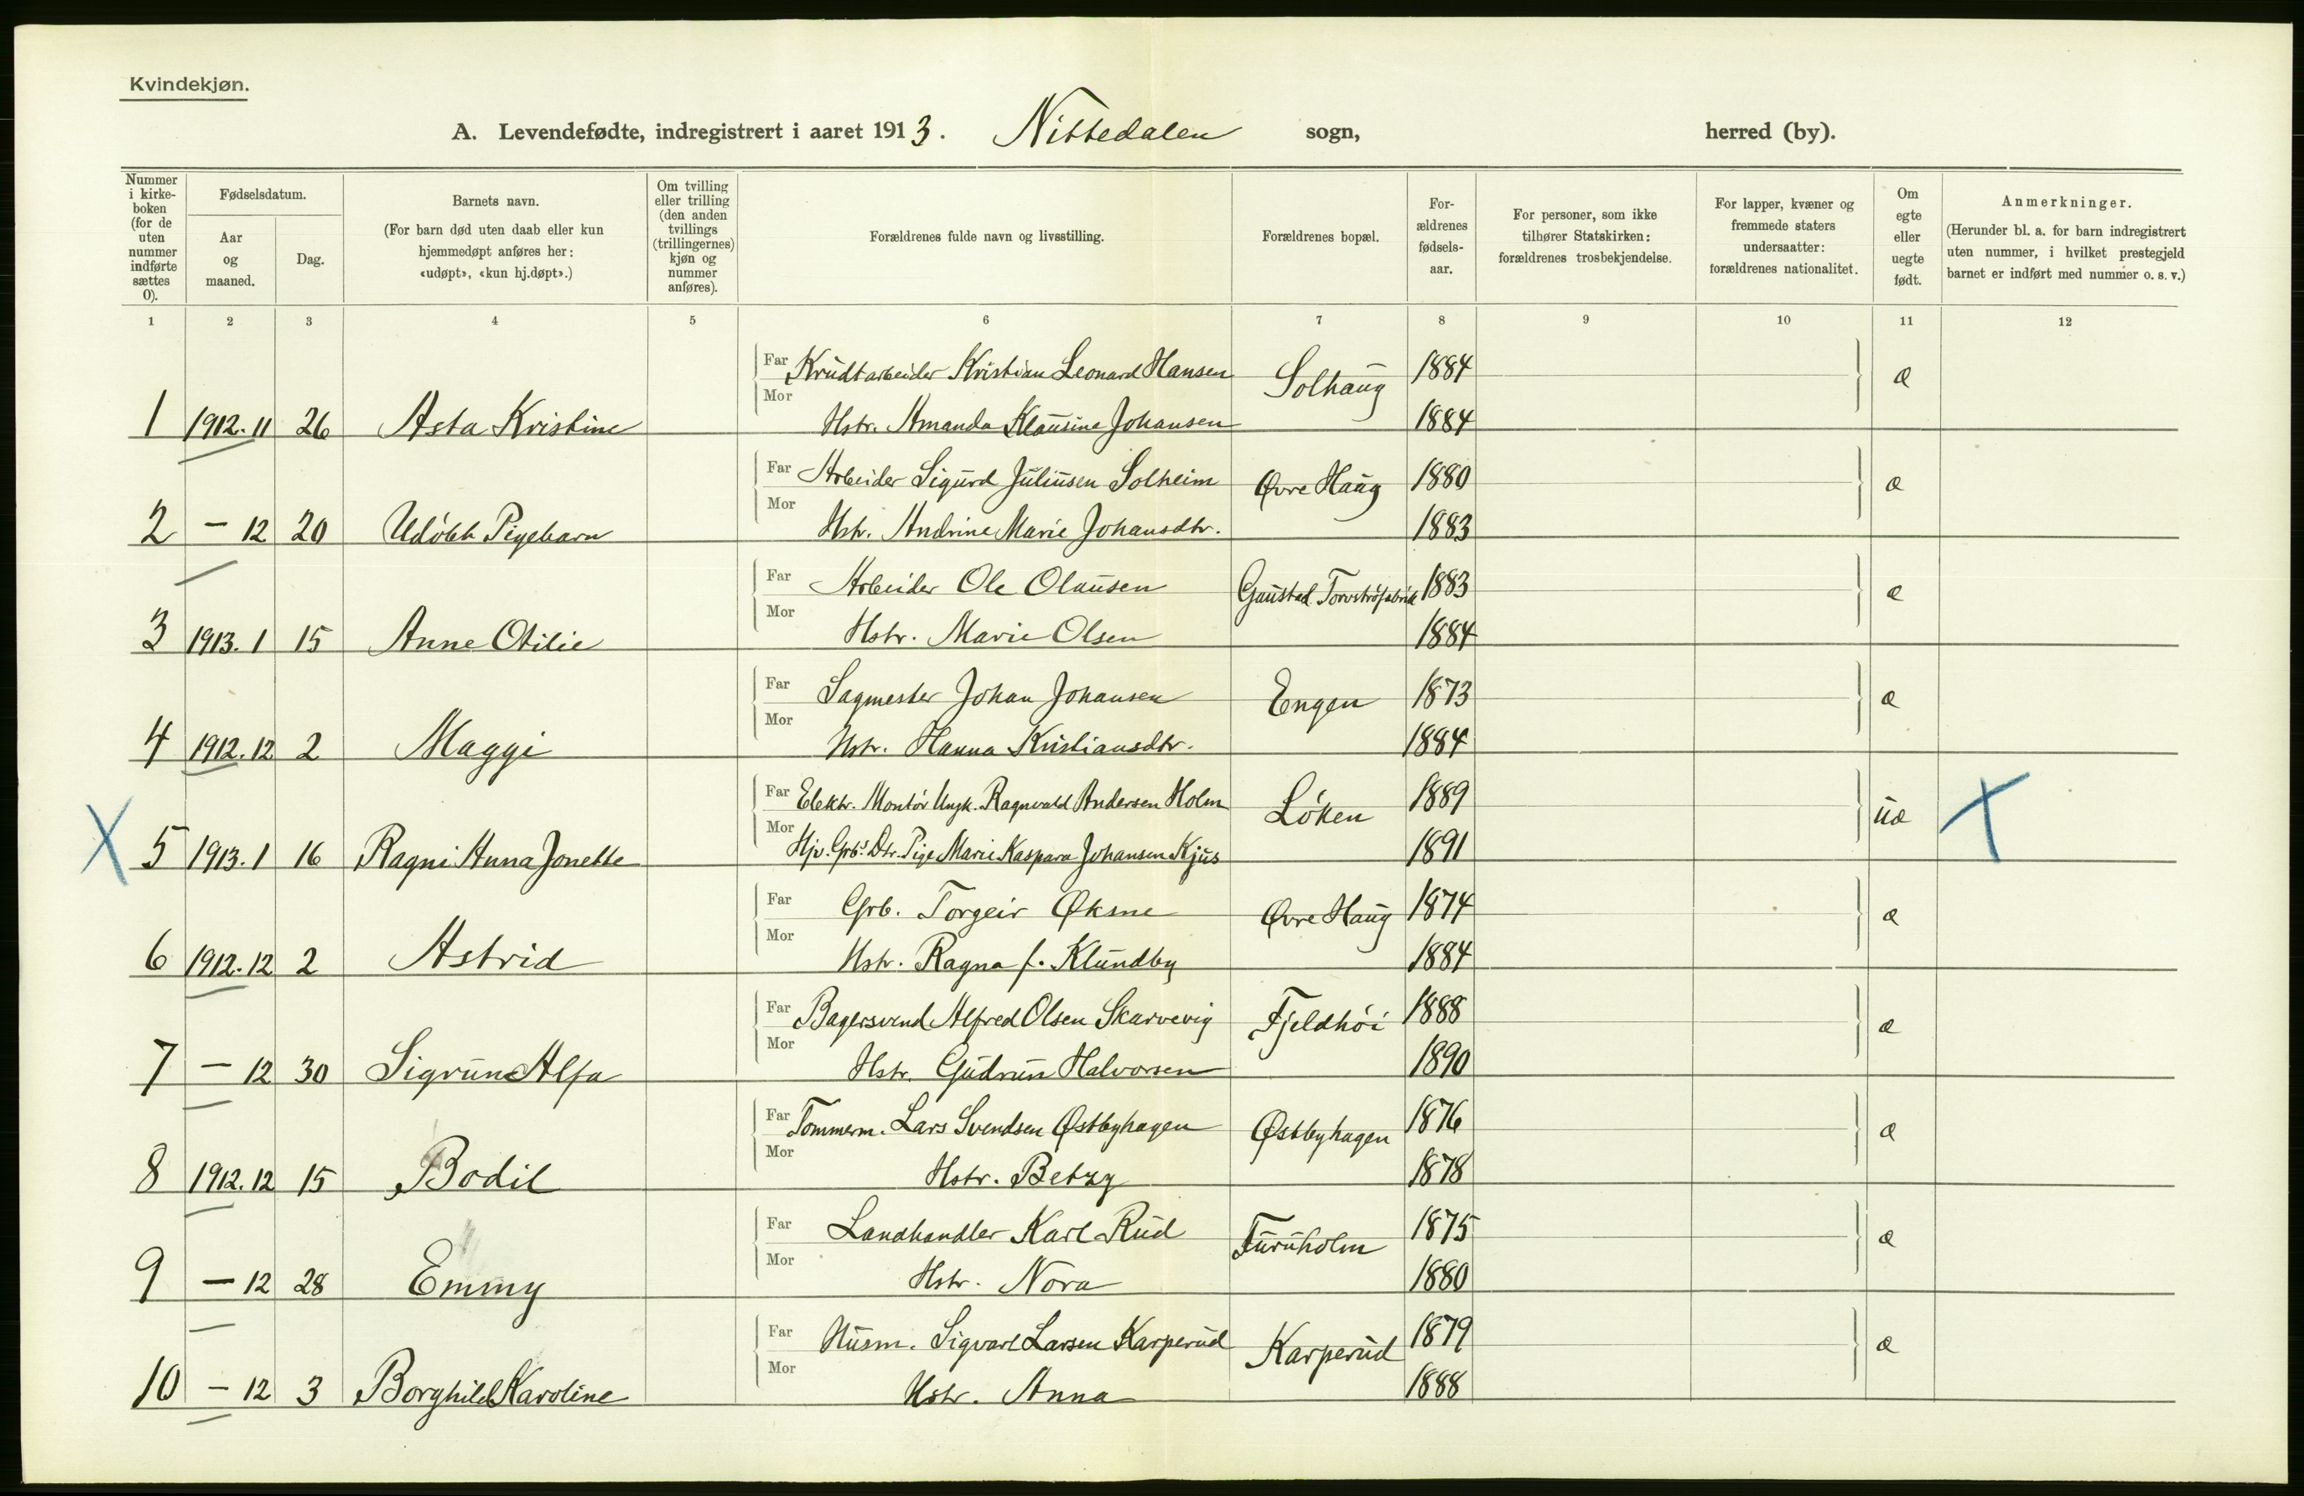 Kvindekjøn.
A. Levendefødte, indregistrert i aaret 1913. Nittedalen sogn, herred (by).
Nummer i kirke-boken (for de uten nummer indførte sættes 0).
Fødselsdatum.
Aar og maaned.
Dag.
Barnets navn.
(For barn død uten daab eller kun hjemmedøpt anføres her: «udøpt», «kun hj.døpt».)
Om tvilling eller trilling (den anden tvillings (trillingernes) kjøn og nummer anføres).
Forældrenes fulde navn og livsstilling.
Forældrenes bopæl.
For-ældrenes fødsels-aar.
For personer, som ikke tilhører Statskirken: forældrenes trosbekjendelse.
For lapper, kvæner og fremmede staters undersaatter: forældrenes nationalitet.
Om egte eller uegte født.
Anmerkninger.
(Herunder bl. a. for barn indregistrert uten nummer, i hvilket prestegjeld barnet er indført med nummer o. s. v.)
1 2 3 4 5 6 7 8 9 10 11 12
Far Krudtarbeider Kristian Leonard Hansen Solhaug 1884 æ
Mor
1 1912. 11 26 Asta Kristine Hstr. Amanda Klausine Johansen 1884
Far Arbeider Sigurd Juliusen Solheim Øvre Haug 1880 æ
Mor
2 — 12 20 Udöbt Pigebarn Hstr. Andrine Marie Johansdtr. 1883
Far Arbeider Ole Olausen Gaustad Torvströfabrik 1883 æ
Mor
3 1913. 1 15 Anne Otilie Hstr. Marie Olsen 1884
Far Sagmester Johan Johansen Engen 1873 æ
Mor
4 1912. 12 2 Maggi Hstr. Hanna Kristiansdtr. 1884
Far Elektr. Montör Ungk. Ragnvald Andersen Holm Löken 1889 uæ
Mor
5 1913. 1 16 Ragni Anna Jonette Hjv. Grbs. Dtr. Pige Marie Kaspara Johansen Kjus 1891
Far Grb. Torgeir Øksne Øvre Haug 1874 æ
Mor
6 1912. 12 2 Astrid Hstr. Ragna f. Klundby 1884
Far Bagersvend Alfred Olsen Skarvevig Fjeldhöi 1888 æ
Mor
7 — 12 30 Sigrun Alfa Hstr. Gudrun Halvorsen 1890
Far Tommerm. Lars Svendsen Østbyhagen Østbyhagen 1876 æ
Mor
8 1912. 12 15 Bodil Hstr. Betzy 1878
Far Landhandler Karl Rud Furuholm 1875 æ
Mor
9 — 12 28 Emmy Hstr. Nora 1880
Far Husm. Sigvart Larsen Karperud Karperud 1879 æ
Mor
10 — 12 3 Borghild Karoline Hstr. Anna 1888